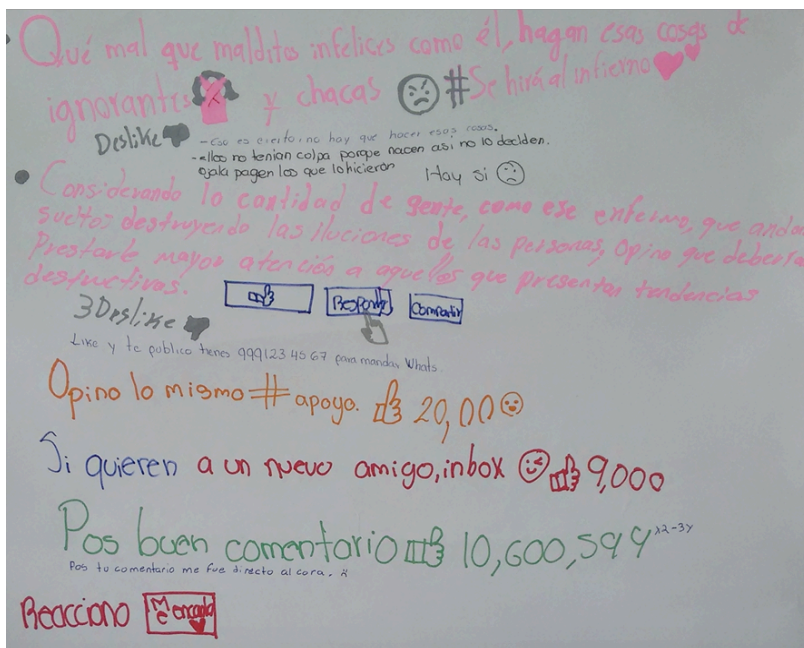 Qué mal que malditos infelices como él, hagan esas cosas de
ignorantes y chacas #Se hirá al infierno
Deslike
-Eso es cierto, no hay que hacer esas cosas.
-ellos no tenian culpa porque nacen asi no lo deciden.
ojala pagen los que lo hicieron
Hay si
Considerando la cantidad de gente, como ese enfermo, que andan
sueltos destruyendo las iluciones de las personas, Opino que deberían
Prestarle mayor atención a aquellos que presentan tendencias
destructivas.
Responder Compartir
3 Deslike
Like y te publico tienes 999123 45 67 para mandar Whats.
Opino lo mismo # apoyo. 20,00
Si quieren a un nuevo amigo, inbox 9,000
Pos buen comentario 10,600,599 x2-3y
Pos tu comentario me fue directo al cora. x
Reacciono Me encanta